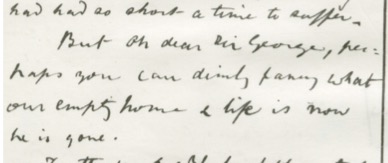 had had so short a time to suffer.
But Oh dear Sir George, per-
haps you can dimly fancy what
our empty home & life is now
he is gone.